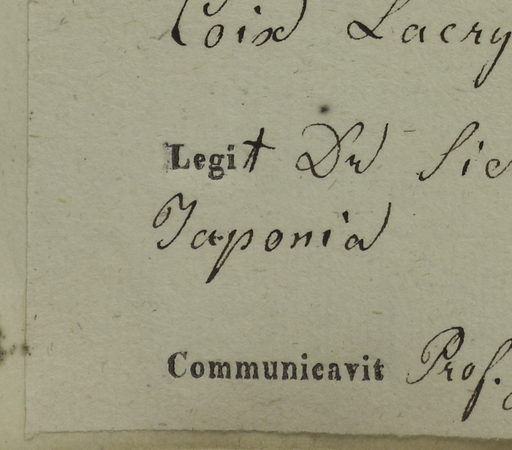 Coix Lacry
Legit Dr Sie
Japonia
Communicavit Prof.